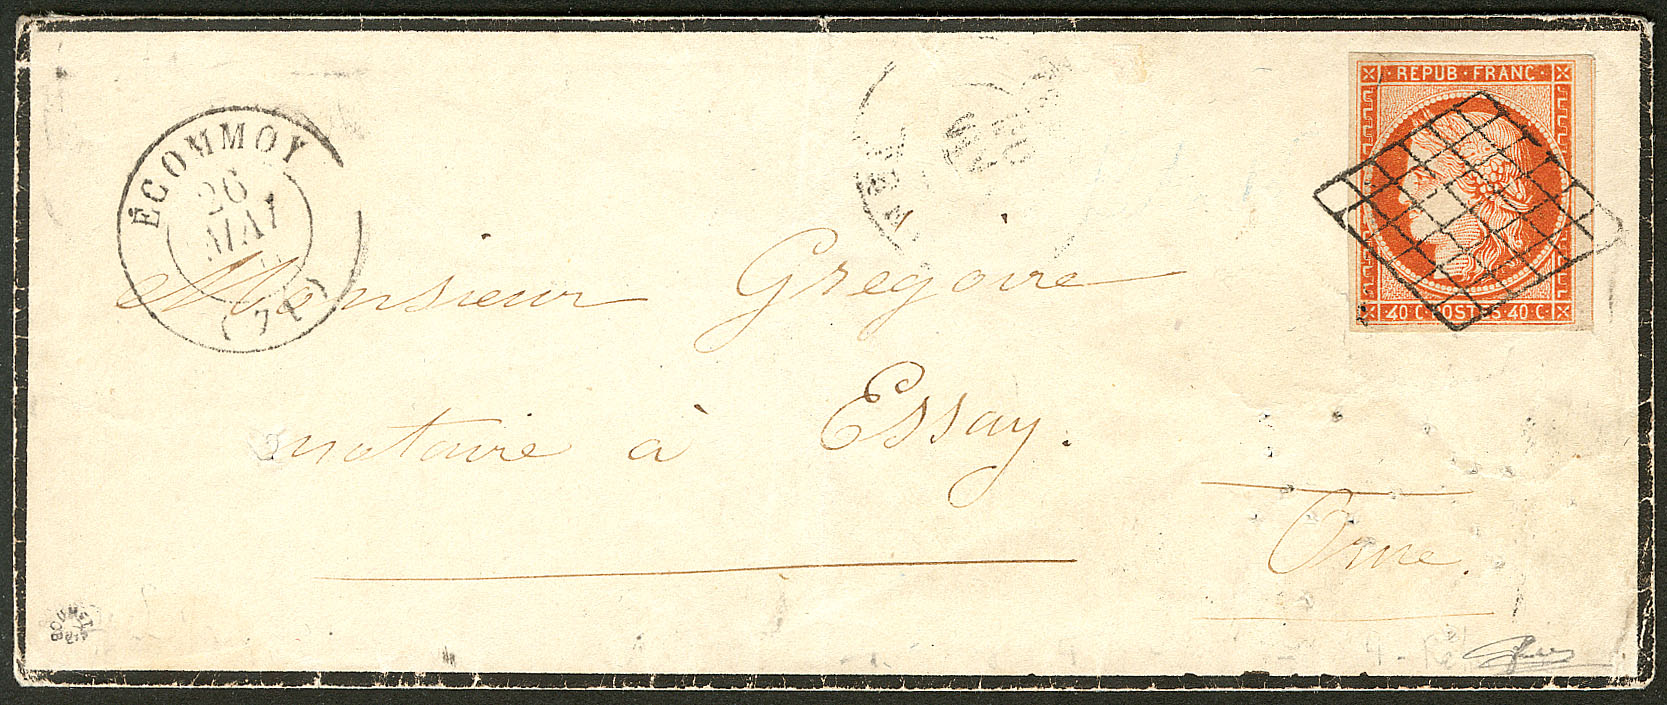 REPUB·FRANC·
40 C·POSTES·40 C·
ÉCOMMOY
26
MAI
(71)
Monsieur Gregoire
notaire à Essay.
Orne.